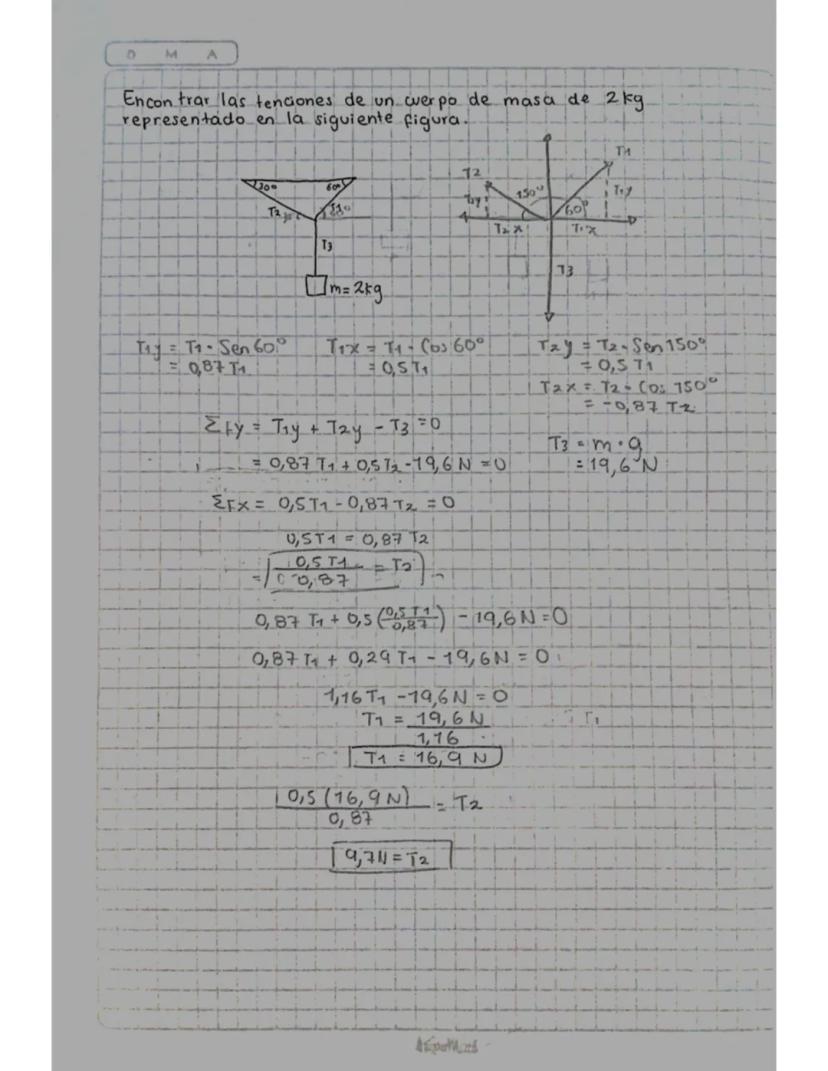 D M A
Encontrar las tenciones de un cuerpo de masa de 2kg
representado en la siguiente figura.
30° 60°
T2
T3
m=2kg
T2 T1
150° T1y
T2y 60°
T2x T1x
T3
T1y = T1 · Sen 60° T1x = T1 · Cos 60° T2y = T2 · Sen 150°
= 0,87 T1 = 0,5 T1 = 0,5 T1
T2x = T2 · Cos 150°
= -0,87 T2
ΣFy = T1y + T2y - T3 = 0
T3 = m · g
= 0,87 T1 + 0,5 T2 - 19,6 N = 0 = 19,6 N
ΣFx = 0,5 T1 - 0,87 T2 = 0
0,5 T1 = 0,87 T2
= 0,5 T1 / 0,87 = T2
0,87 T1 + 0,5 (0,5 T1 / 0,87) - 19,6 N = 0
0,87 T1 + 0,29 T1 - 19,6 N = 0
1,16 T1 - 19,6 N = 0
T1 = 19,6 N
1,16
T1 = 16,9 N
0,5 (16,9 N) = T2
0,87
9,7 N = T2